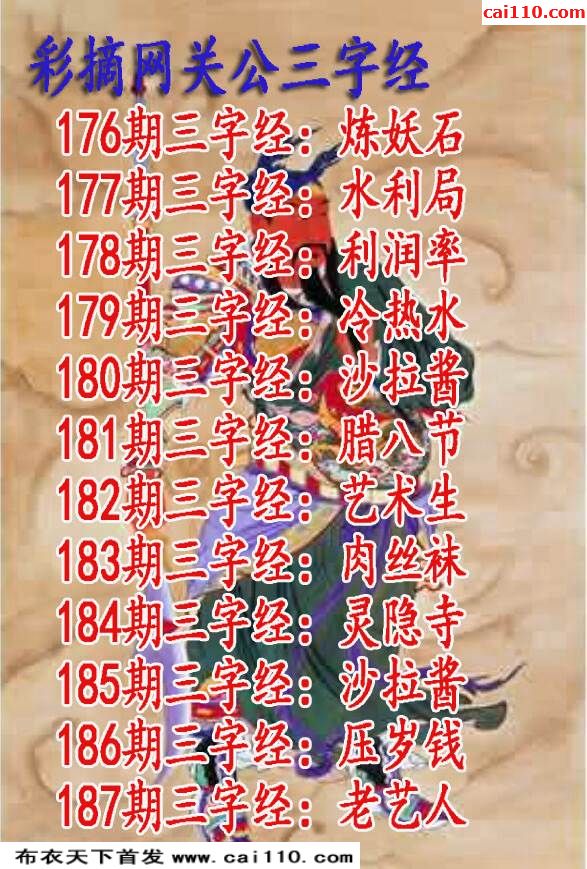 cai110.com
彩摘网关公三字经
176期三字经：炼妖石
177期三字经：水利局
178期三字经：利润率
179期三字经：冷热水
180期三字经：沙拉酱
181期三字经：腊八节
182期三字经：艺术生
183期三字经：肉丝袜
184期三字经：灵隐寺
185期三字经：沙拉酱
186期三字经：压岁钱
187期三字经：老艺人
布衣天下首发 www.cai110.com